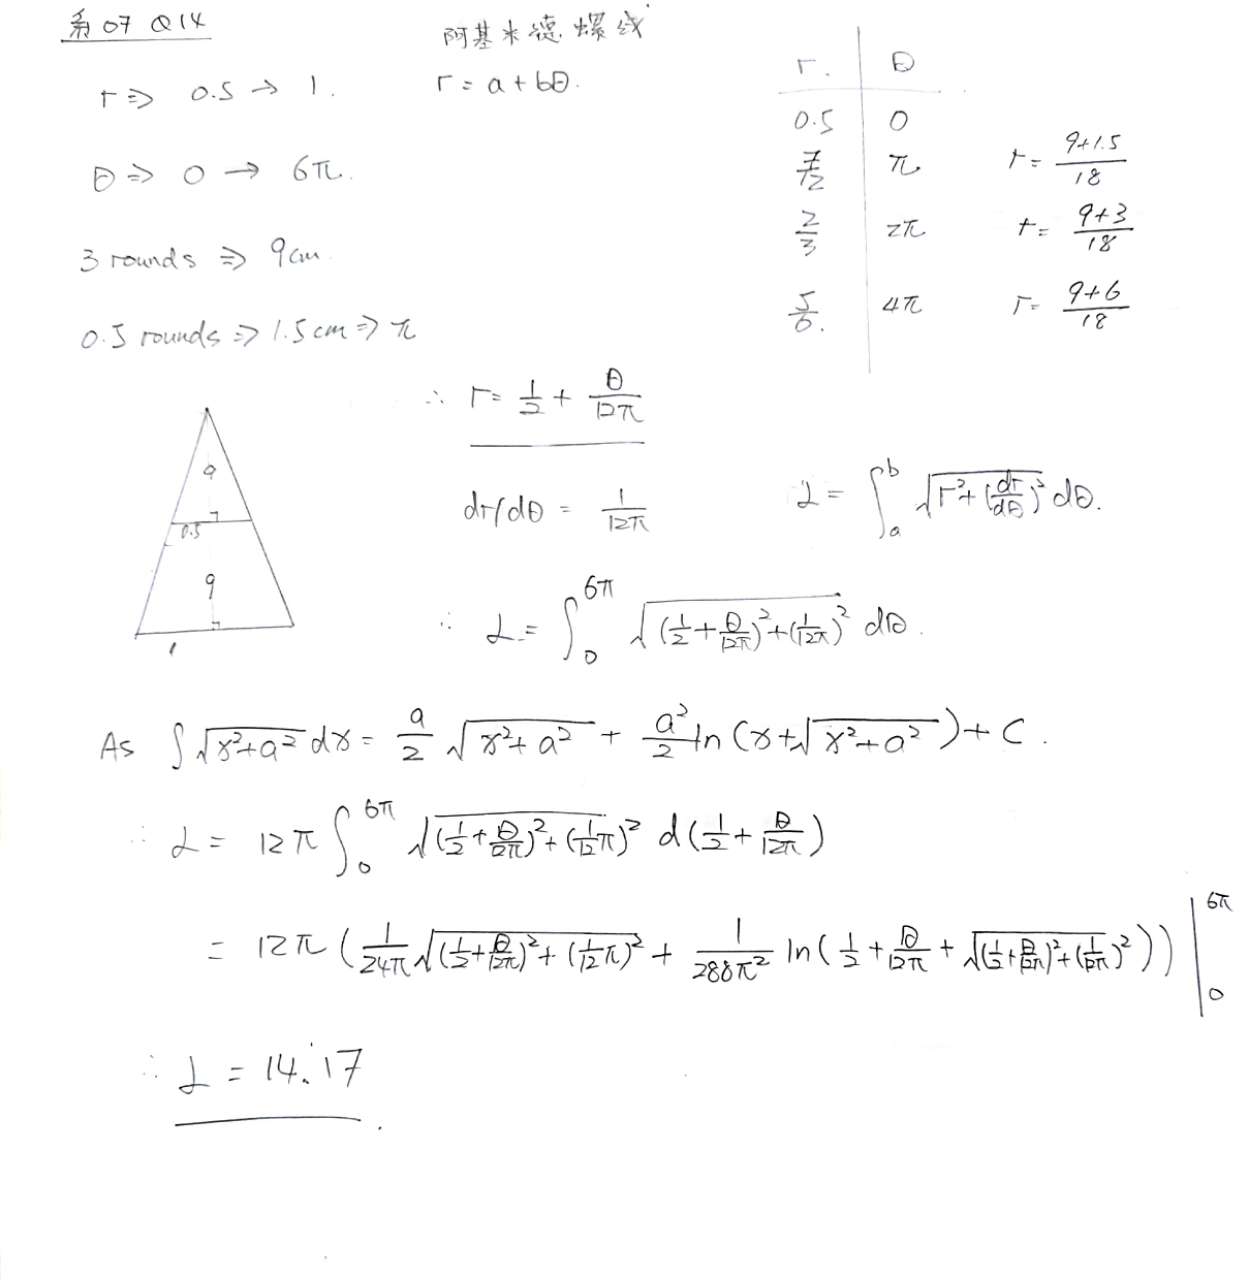 系 07 Q14
阿基米德螺线
r ⇒ 0.5 → 1.
r = a + bθ.
θ ⇒ 0 → 6π.
3 rounds ⇒ 9cm
0.5 rounds ⇒ 1.5cm ⇒ π
r. θ
0.5 0
7/12 π r = (9+1.5)/18
2/3 2π r = (9+3)/18
5/6. 4π r = (9+6)/18
∴ r = 1/2 + θ/12π
9
0.5
9
1
dr/dθ = 1/12π
L = ∫_a^b √(r²+(dr/dθ)²) dθ.
∴ L = ∫_0^6π √((1/2+θ/12π)²+(1/12π)²) dθ.
As ∫√(x²+a²) dx = a/2 √(x²+a²) + a²/2 ln(x+√(x²+a²)) + C.
∴ L = 12π ∫_0^6π √((1/2+θ/12π)²+(1/12π)²) d(1/2+θ/12π)
= 12π (1/24π √((1/2+θ/12π)²+(1/12π)²) + 1/288π² ln(1/2+θ/12π+√((1/2+θ/12π)²+(1/12π)²))) |_0^6π
∴ L = 14.17.